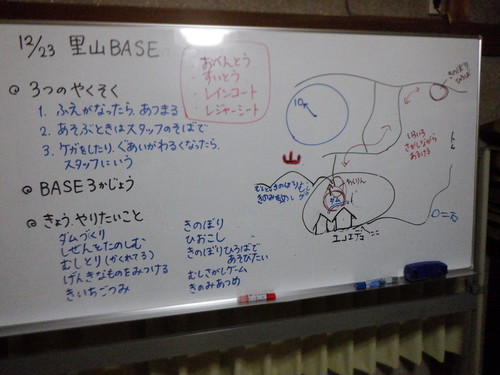 12/23 里山BASE
おべんとう
すいとう
レインコート
レジャーシート
◎ 3つのやくそく
1. ふえがなったら、あつまる
2. あそぶときはスタッフのそばで
3. ケガをしたり、ぐあいがわるくなったら、
スタッフにいう
◎ BASE3かじょう
◎ きょう、やりたいこと
ダムづくり
しぜんをたのしむ
むしとり(かくれてる)
げんきなものをみつける
きいちごつみ
きのぼり
ひおこし
きのぼりひろばで
あそびたい
むしさがしゲーム
きのみあつめ
10
山
きのぼり
ひろば
いろいろ
さがしながら
あるける
ちくりん
ダム